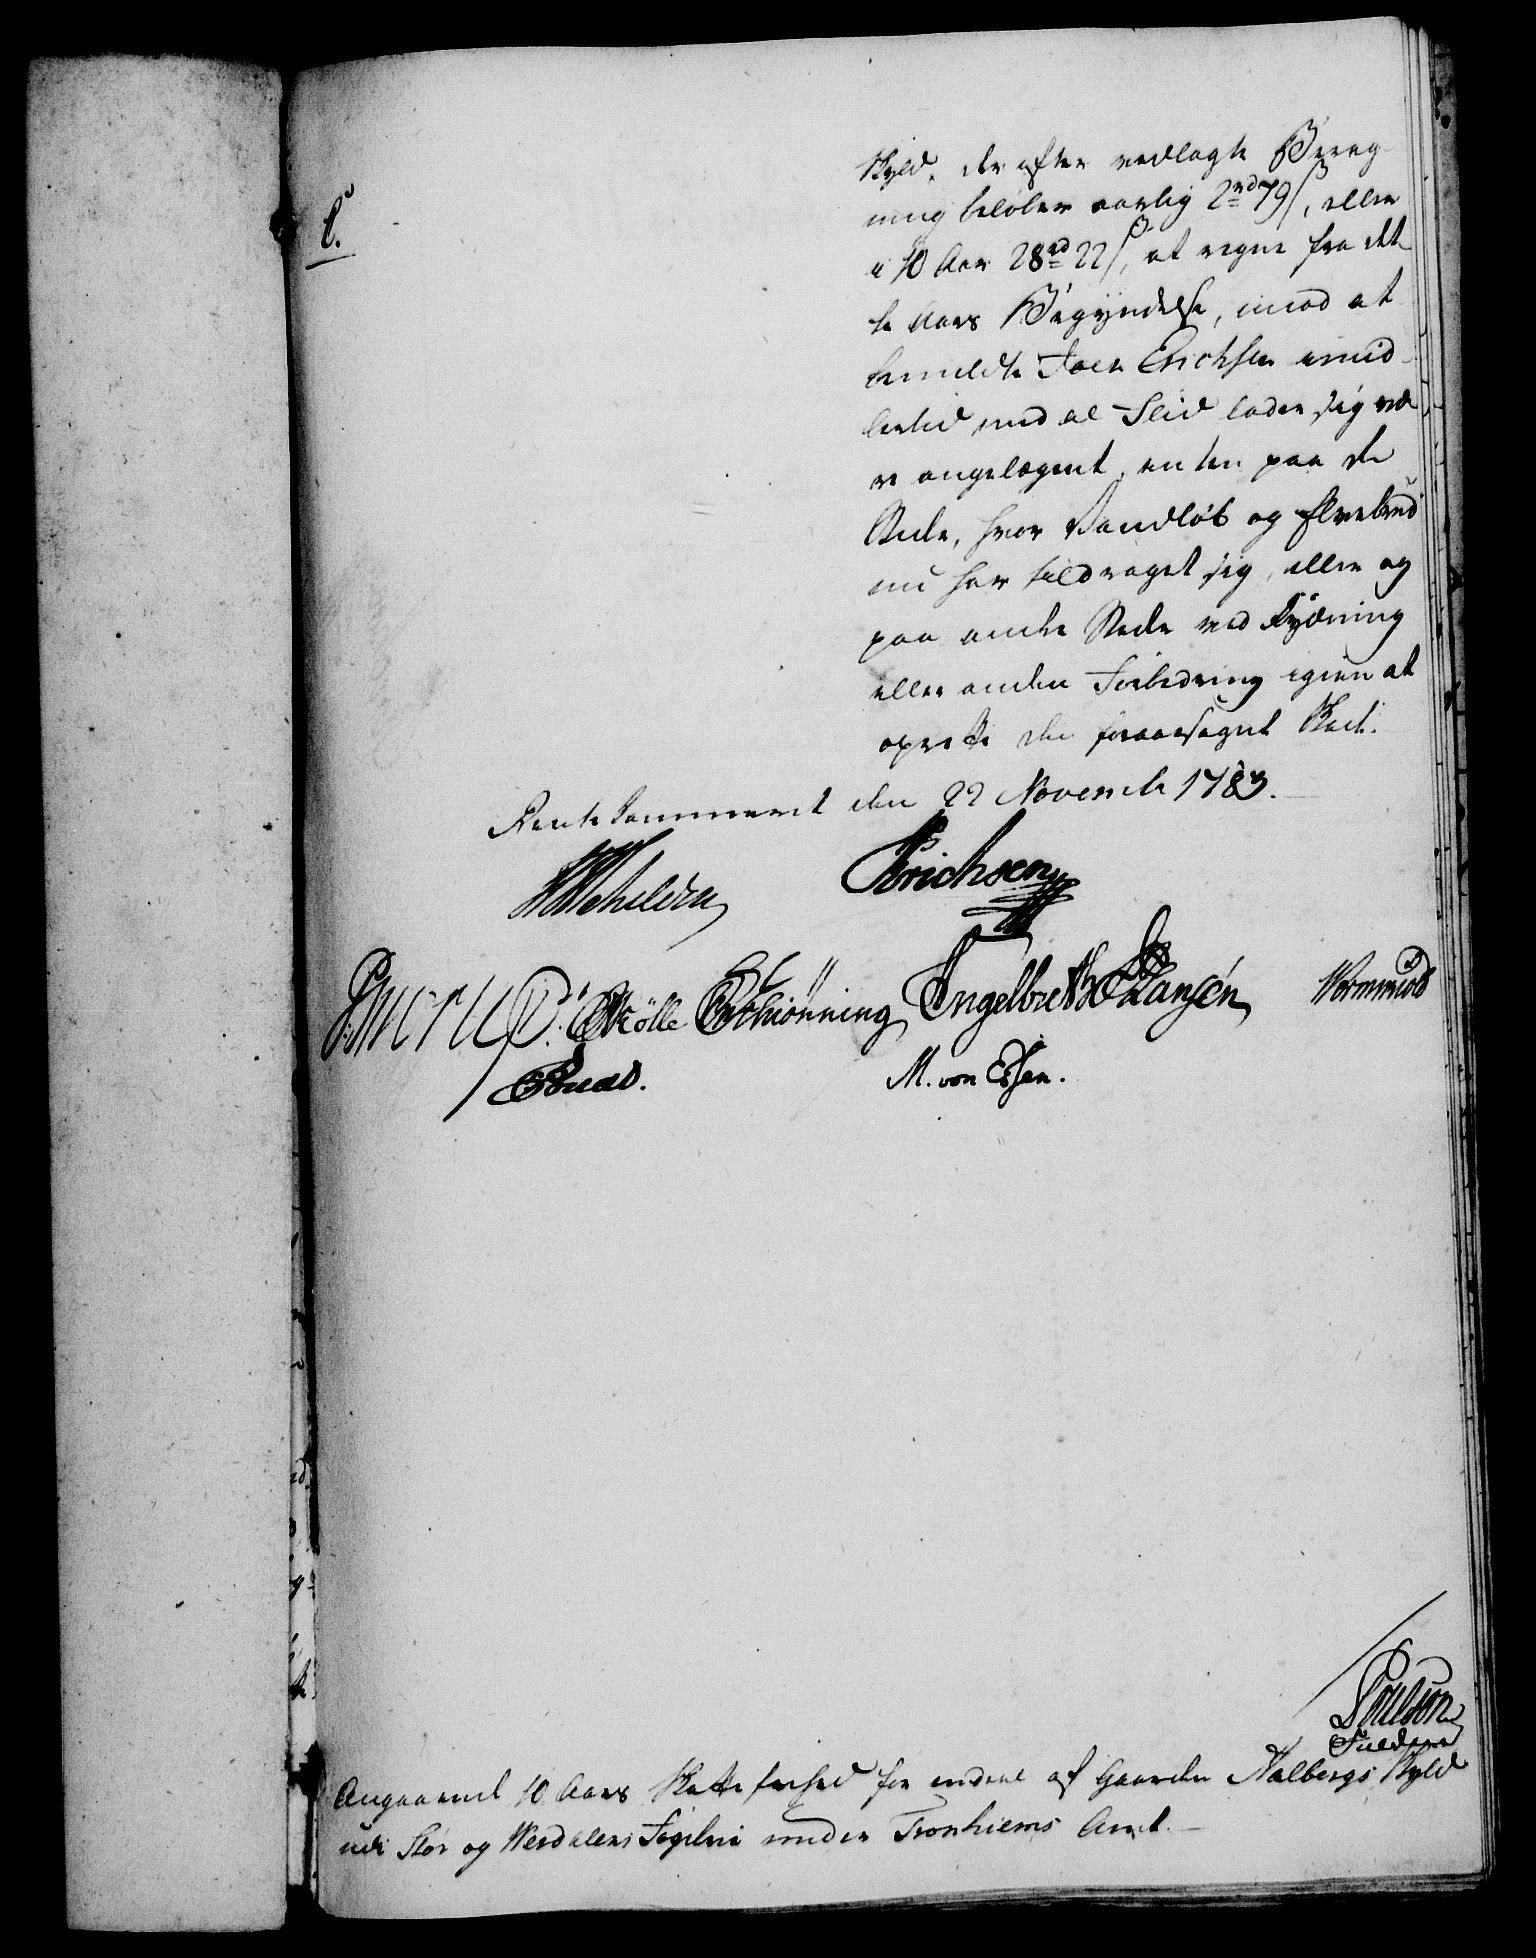 C.
Skyld, der efter vedlagte Bereg-
ning beløber aarlig 2 rd 79 s, eller
i 10 Aar 28 rd 22 s, at regne fra det-
te Aars Begyndelse, imod at
bemeldte Joen Erichsen imid-
lertid med al Flid lader sig væ-
re angelegent, enten paa de
Stæder, hvor Vandløb og Elvebrud
nu har tildraget sig, eller og
paa andre Stæder ved Rydning
eller anden Forbedring igien at
oprette den foraarsaget Skade.
Rentekammeret den 22 Novembr 1783.
Erichsen
Mølle Schiønning Engelbreth Hansen Wormskiold
M. von Essen.
Poulson
Angaaende 10 Aars Skatte frihed for endeel af Gaarden Aalbergs Skyld
udi Stør og Werdalens Fogderie under Tronhiems Amt.